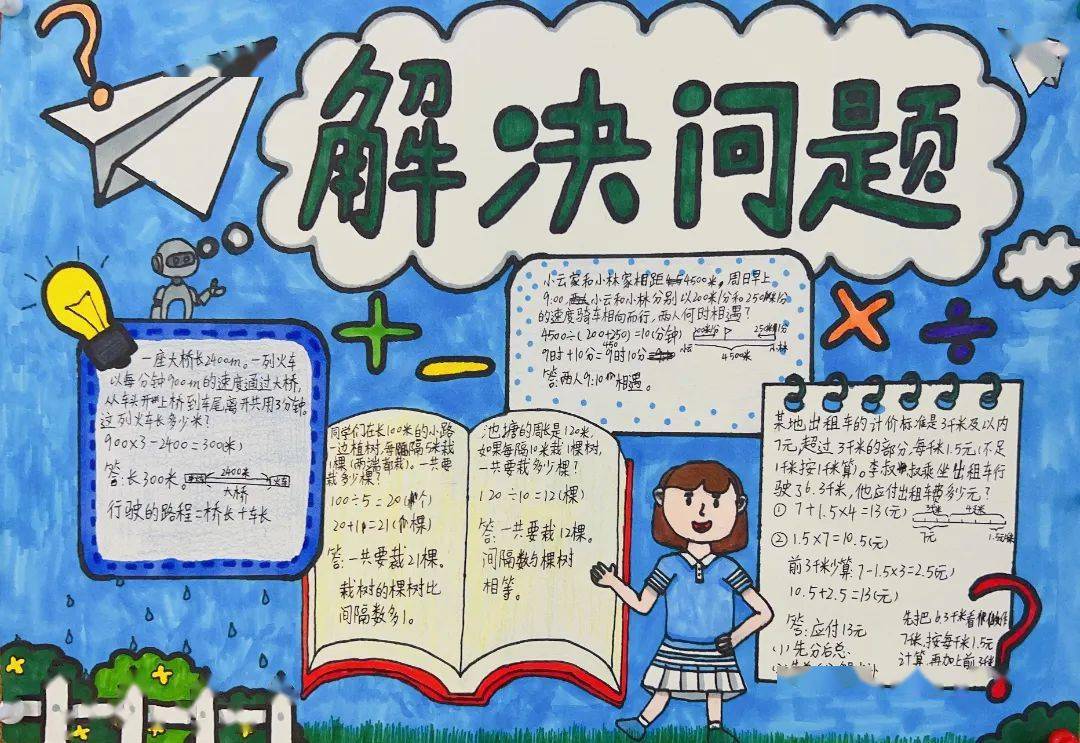 解决问题
小云家和小林家相距4500米。周日早上
9:00,小云和小林分别以200米/分和250米/分
的速度骑车相向而行,两人何时相遇?
4500÷(200+250)=10(分钟)
450
9时+10分=9时10分
4500米
答:两人9:10相遇。
一座大桥长2400m。一列火车
以每分钟900m的速度通过大桥,
从车头开上桥到车尾离开共用3分钟。
这列火车长多少米?
900×3-2400=300(米)
答:长300米。
2400米
大桥
火车
行驶的路程=桥长+车长
同学们在长100米的小路
一边植树,每隔5米栽
1棵(两端都栽)。一共要
栽多少棵?
100÷5=20(个)
20+1=21(棵)
答:一共要栽21棵。
栽树的棵树比
间隔数多1。
池塘的周长是120米,
如果每隔10米栽1棵树,
一共要栽多少棵?
120÷10=12(棵)
答:一共要栽12棵。
间隔数与棵树
相等。
某地出租车的计价标准是3千米及以内
7元,超过3千米的部分,每千米1.5元(不足
1千米按1千米算)。李叔叔乘坐出租车行
驶了6.3千米,他应付出租车费多少元?
① 7+1.5×4=13(元)
3千米 4千米
7元
② 1.5×7=10.5(元)
前3千米少算:7-1.5×3=2.5(元)
10.5+2.5=13(元)
答:应付13元
(1)先分后总
先把6.3千米看作
7千米,按每千米1.5元
计算,再加上前3千米